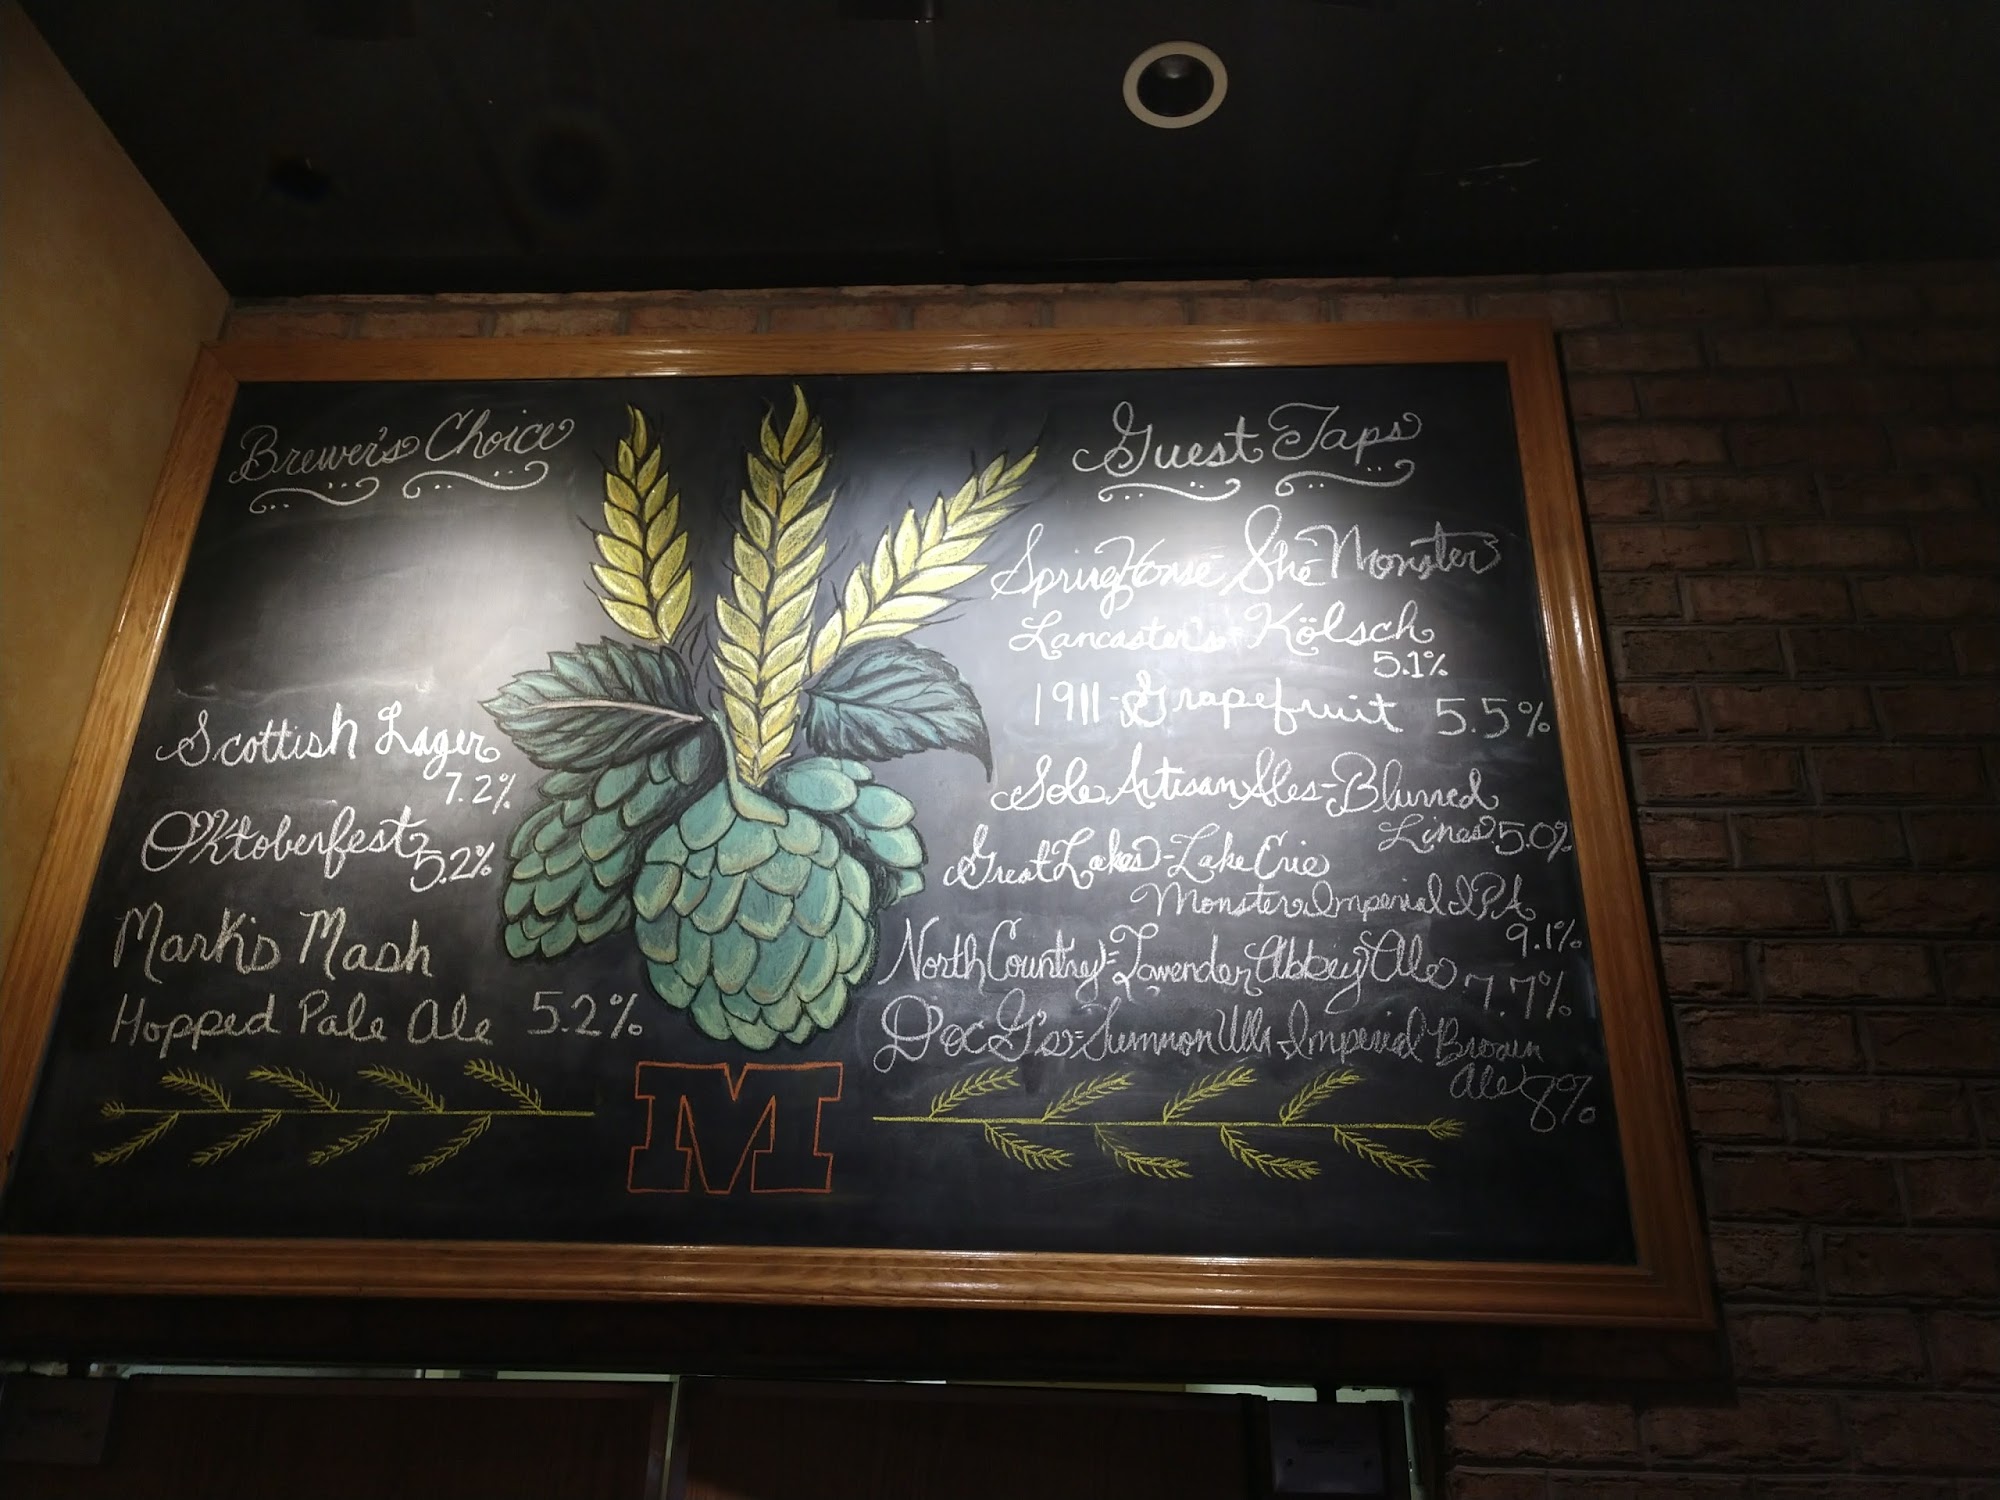 Brewer's Choice
Scottish Lager
7.2%
Oktoberfest
5.2%
Mark's Mash
Hopped Pale Ale 5.2%
M
Guest Taps
SpringHouse She Monster
Lancaster's Kölsch
5.1%
1911-Grapefruit 5.5%
Sole Artisan Ales-Blurred
Lines 5.0%
Great Lakes-Lake Erie
Monster Imperial IPA
9.1%
North Country-Lavender Abbey Ale 7.7%
Doc G's-Imperial Brown
Ale 8%